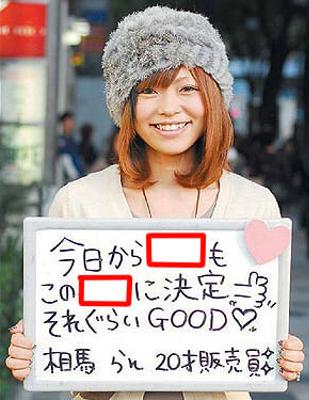 今日から も
この に決定
それぐらいGOOD♡
相馬 らん 20才販売員